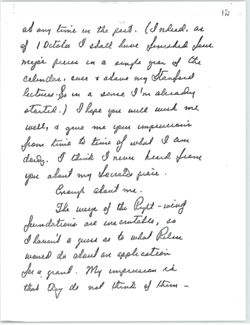 at any time in the past. (Indeed, as
of 1 October I shall have finished four
major pieces in a single year of the
calendar, over & above my Stanford
lectures. So in a sense I'm already
started.) I hope you will wish me
well, & give me your impressions
from time to time of what I am
doing. I think I never heard from
you about my Socrates piece.
Enough about me.
The ways of the Right-wing
foundations are inscrutable, so
I haven't a guess as to what Relm
would do about an application
for a grant. My impression is
that they do not think of them-